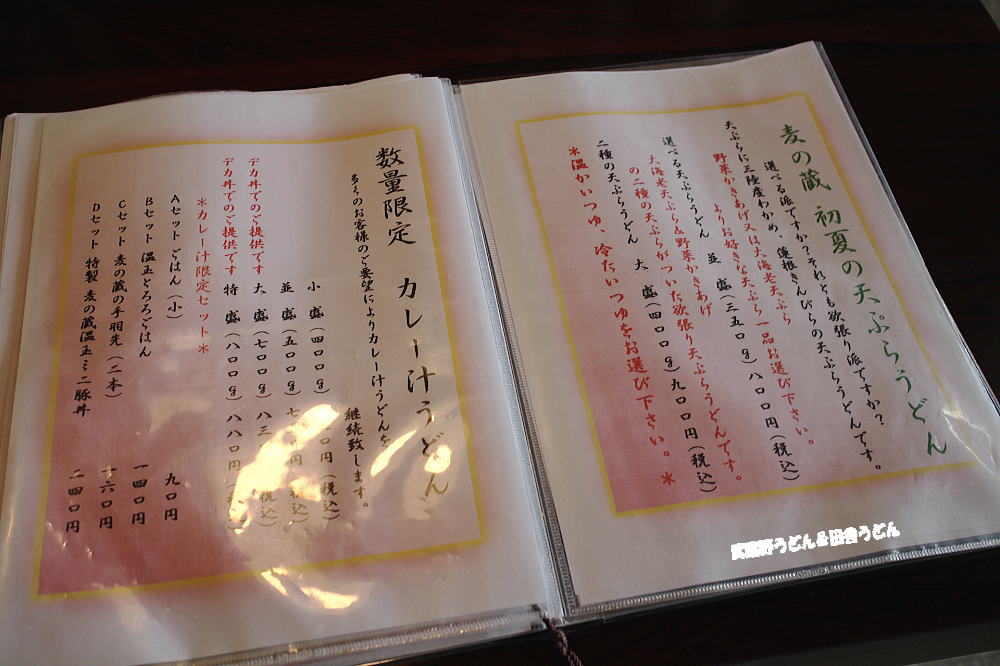 麦の蔵 初夏の天ぷらうどん
選べる派ですか?それとも欲張り派ですか?
天ぷらに三陸産わかめ、蓮根きんぴらの天ぷらうどんです。
野菜かきあげ又は大海老天ぷら
よりお好きな天ぷら一品お選び下さい。
選べる天ぷらうどん 並 盛(三五〇g)八〇〇円(税込)
大海老天ぷら&野菜かきあげ
の二種の天ぷらがついた欲張り天ぷらうどんです。
二種の天ぷらうどん 大 盛(四〇〇g)九〇〇円(税込)
*温かいつゆ、冷たいつゆをお選び下さい。*
数量限定 カレー汁うどん
多くのお客様のご要望によりカレー汁うどんを
継続致します。
小 盛(四〇〇g) 〇円(税込)
並 盛(五〇〇g)七 円(税込)
デカ丼でのご提供です 大 盛(七〇〇g)八三 (税込)
デカ丼でのご提供です 特 盛(八〇〇g)八八〇円(税込)
*カレー汁限定セット*
Aセットごはん(小) 九〇円
Bセット 温玉とろろごはん 一四〇円
Cセット 麦の蔵の手羽先(二本) 一六〇円
Dセット 特製 麦の蔵温玉ミニ豚丼 二四〇円
武蔵野うどん&田舎うどん